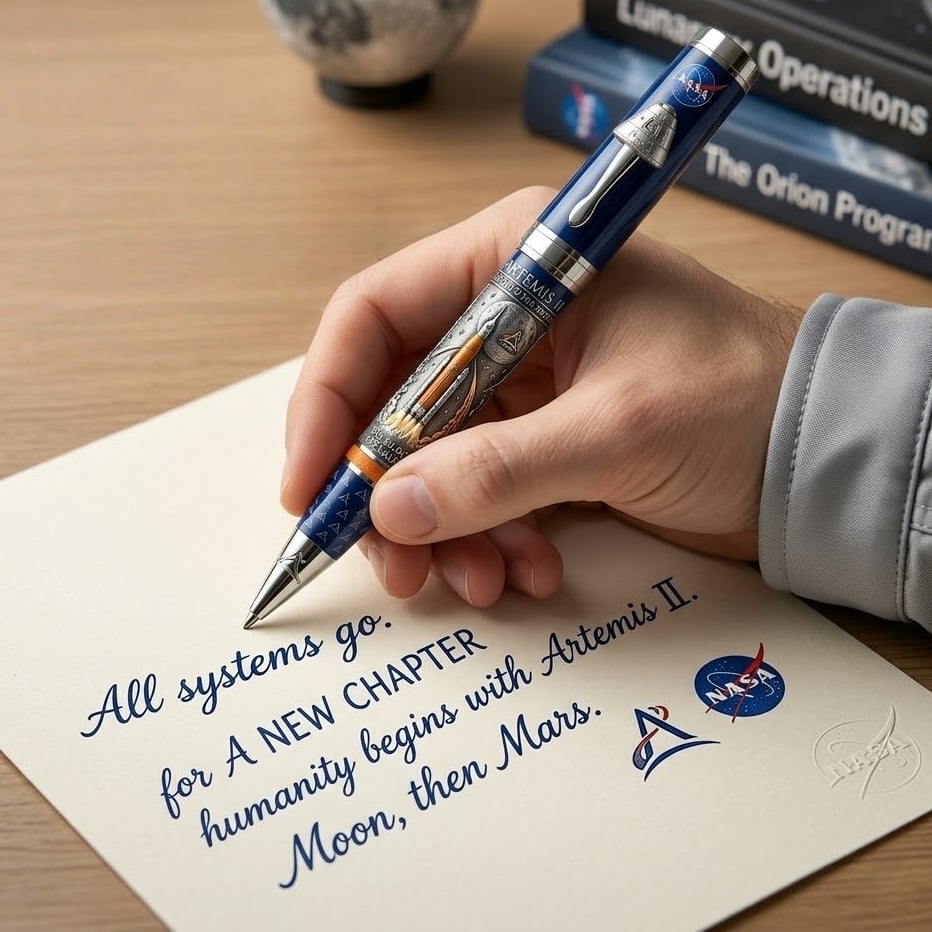 Lunar Operations
The Orion Program
ARTEMIS II
All systems go.
for A NEW CHAPTER
humanity begins with Artemis II.
Moon, then Mars.
NASA
NASA